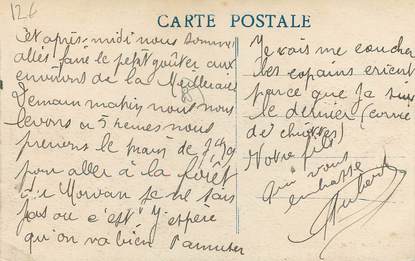 126
CARTE POSTALE
Cet après-midi nous sommes
allés faire le petit goûter aux
environs de la Meilleraie
Demain matin nous nous
levons a 5 heures nous
prenons le train de 7h9
pour aller à la forêt
Morvan je ne sais
pas ou c'est J'espère
qu'on va bien s'amuser
Je vais me coucher
les copains crient
parce que je suis
le dernier (corvée
de
Notre fils
qui vous
embrasse
Hubert